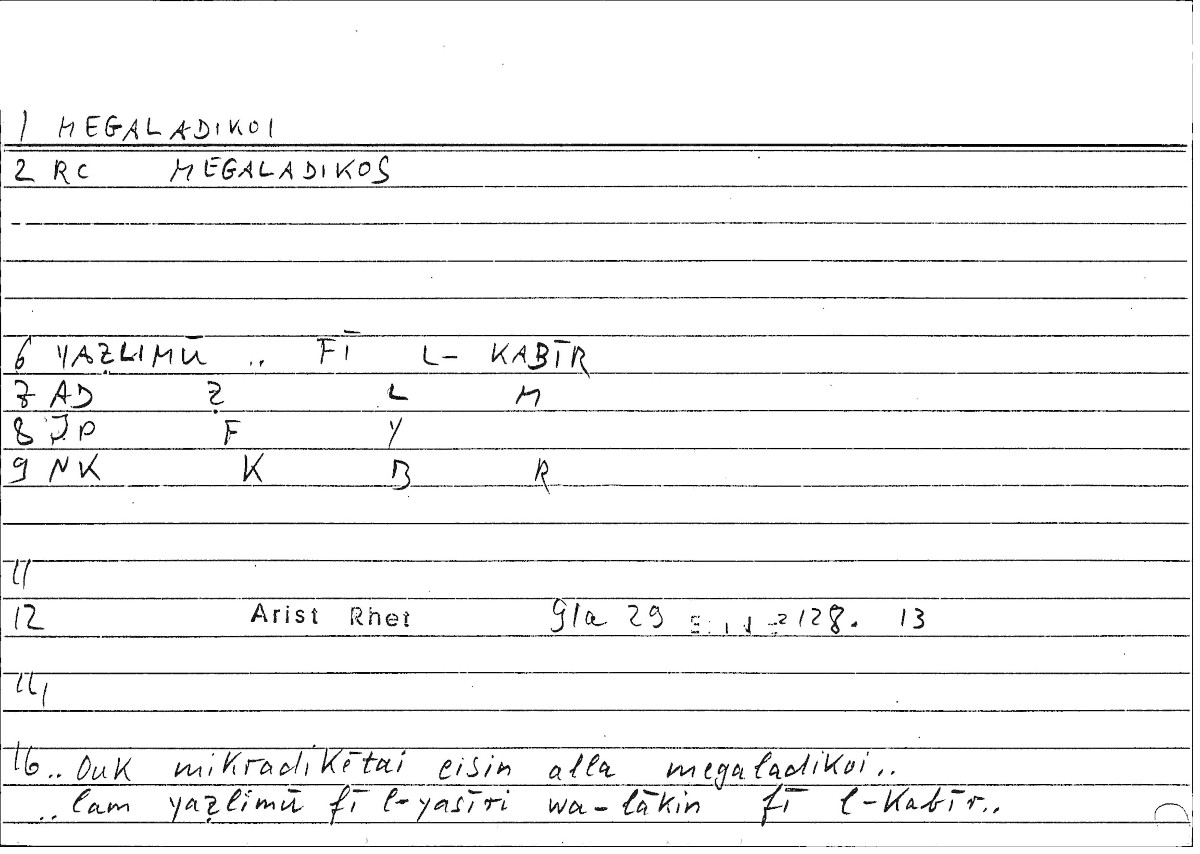 1 MEGALADIKOI
2 RC MEGALADIKOS
6 YAẒLIMŪ .. FĪ L- KABĪR
7 AD Ẓ L M
8 JP F Y
9 NK K B R
11
12 Arist Rhet 91a 29 128. 13
14
16.. Ouk mikradikētai eisin alla megaladikoi..
.. lam yaẓlimū fī l-yasīri wa-lākin fī l-Kabīr..